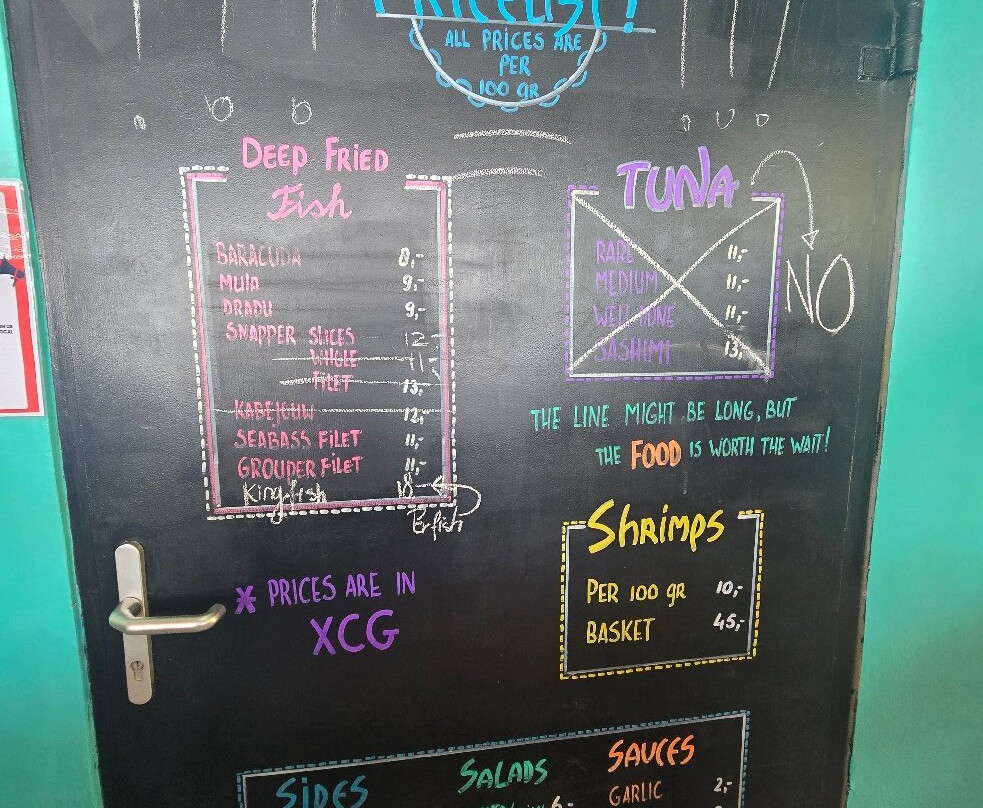 PRICELIST!
ALL PRICES ARE
PER
100 GR
DEEP FRIED
Fish
BARACUDA 8,-
MULA 9,-
DRADU 9,-
SNAPPER SLICES 12-
WHOLE 11,-
FILET 13,-
KABEJOUW 12,-
SEABASS FILET 11,-
GROUPER FILET 11,-
Kingfish
TUNA
NO
RARE 11,-
MEDIUM 11,-
WELL DONE 11,-
SASHIMI 13,-
THE LINE MIGHT BE LONG, BUT
THE FOOD IS WORTH THE WAIT!
SHRIMPS
PER 100 GR 10,-
BASKET 45,-
* PRICES ARE IN
XCG
SIDES
SALADS
6,-
SAUCES
GARLIC 2,-